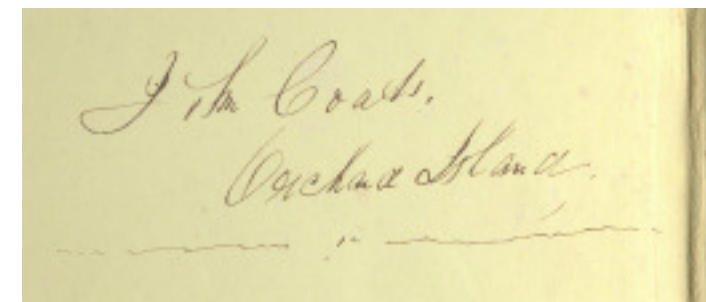 John Coats.
Orchard Island.